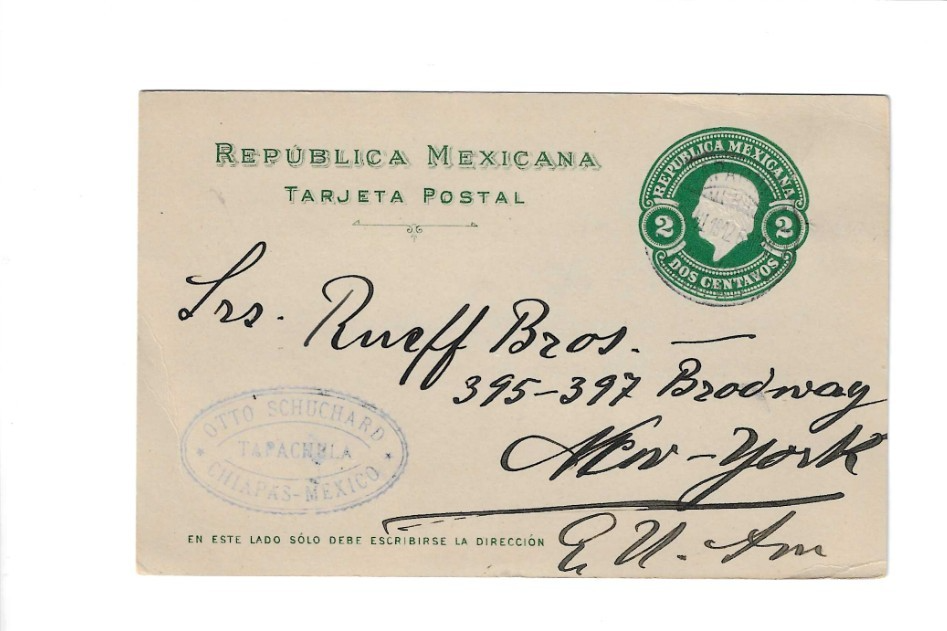 REPÚBLICA MEXICANA
TARJETA POSTAL
REPUBLICA MEXICANA
2 2
DOS CENTAVOS
Srs. Rueff Bros. —
395-397 Brodway
New-York
E. U. Am
OTTO SCHUCHARD
TAPACHULA
CHIAPAS-MEXICO
EN ESTE LADO SÓLO DEBE ESCRIBIRSE LA DIRECCIÓN